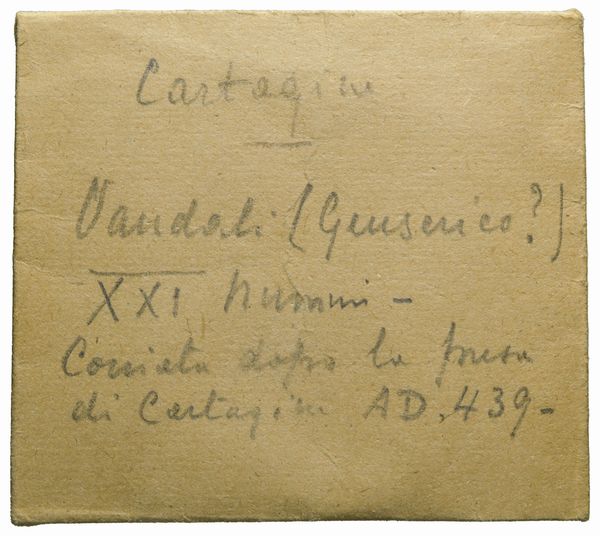 Cartagine
Vandali (Genserico?)
XXI nummi -
Coniata dopo la presa
di Cartagine AD. 439 -